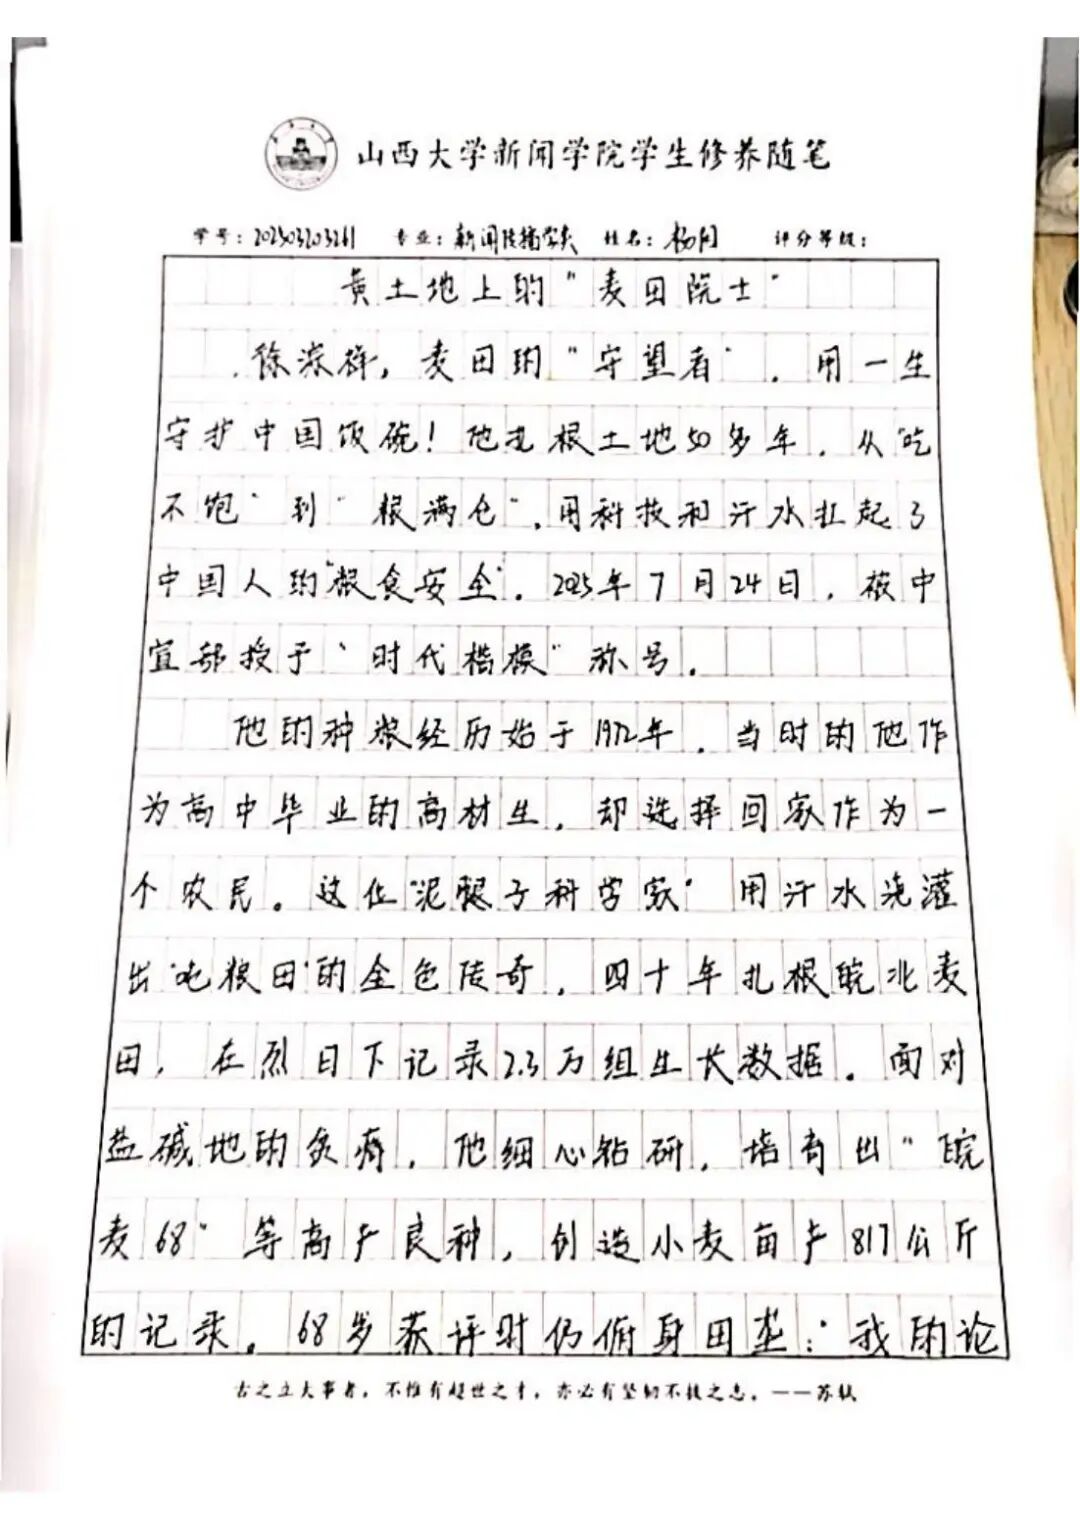 山西大学新闻学院学生修养随笔
学号：202503203261 专业：新闻传播学类 姓名：杨 评分等级：
黄土地上的“麦田院士”
徐淙祥，麦田的“守望者”，用一生
守护中国饭碗！他扎根土地50多年，从“吃
不饱”到“粮满仓”，用科技和汗水扛起了
中国人的“粮食安全”。2025年7月24日，被中
宣部授予“时代楷模”称号。
他的种粮经历始于1972年，当时的他作
为高中毕业的高材生，却选择回家作为一
个农民。这位“泥腿子科学家”用汗水浇灌
出“吨粮田”的金色传奇，四十年扎根皖北麦
田，在烈日下记录2.3万组生长数据。面对
盐碱地的贫瘠，他细心钻研，培育出“皖
麦68”等高产良种，创造小麦亩产817公斤
的记录。68岁获评时仍俯身田垄：“我的论
古之立大事者，不惟有超世之才，亦必有坚韧不拔之志。——苏轼